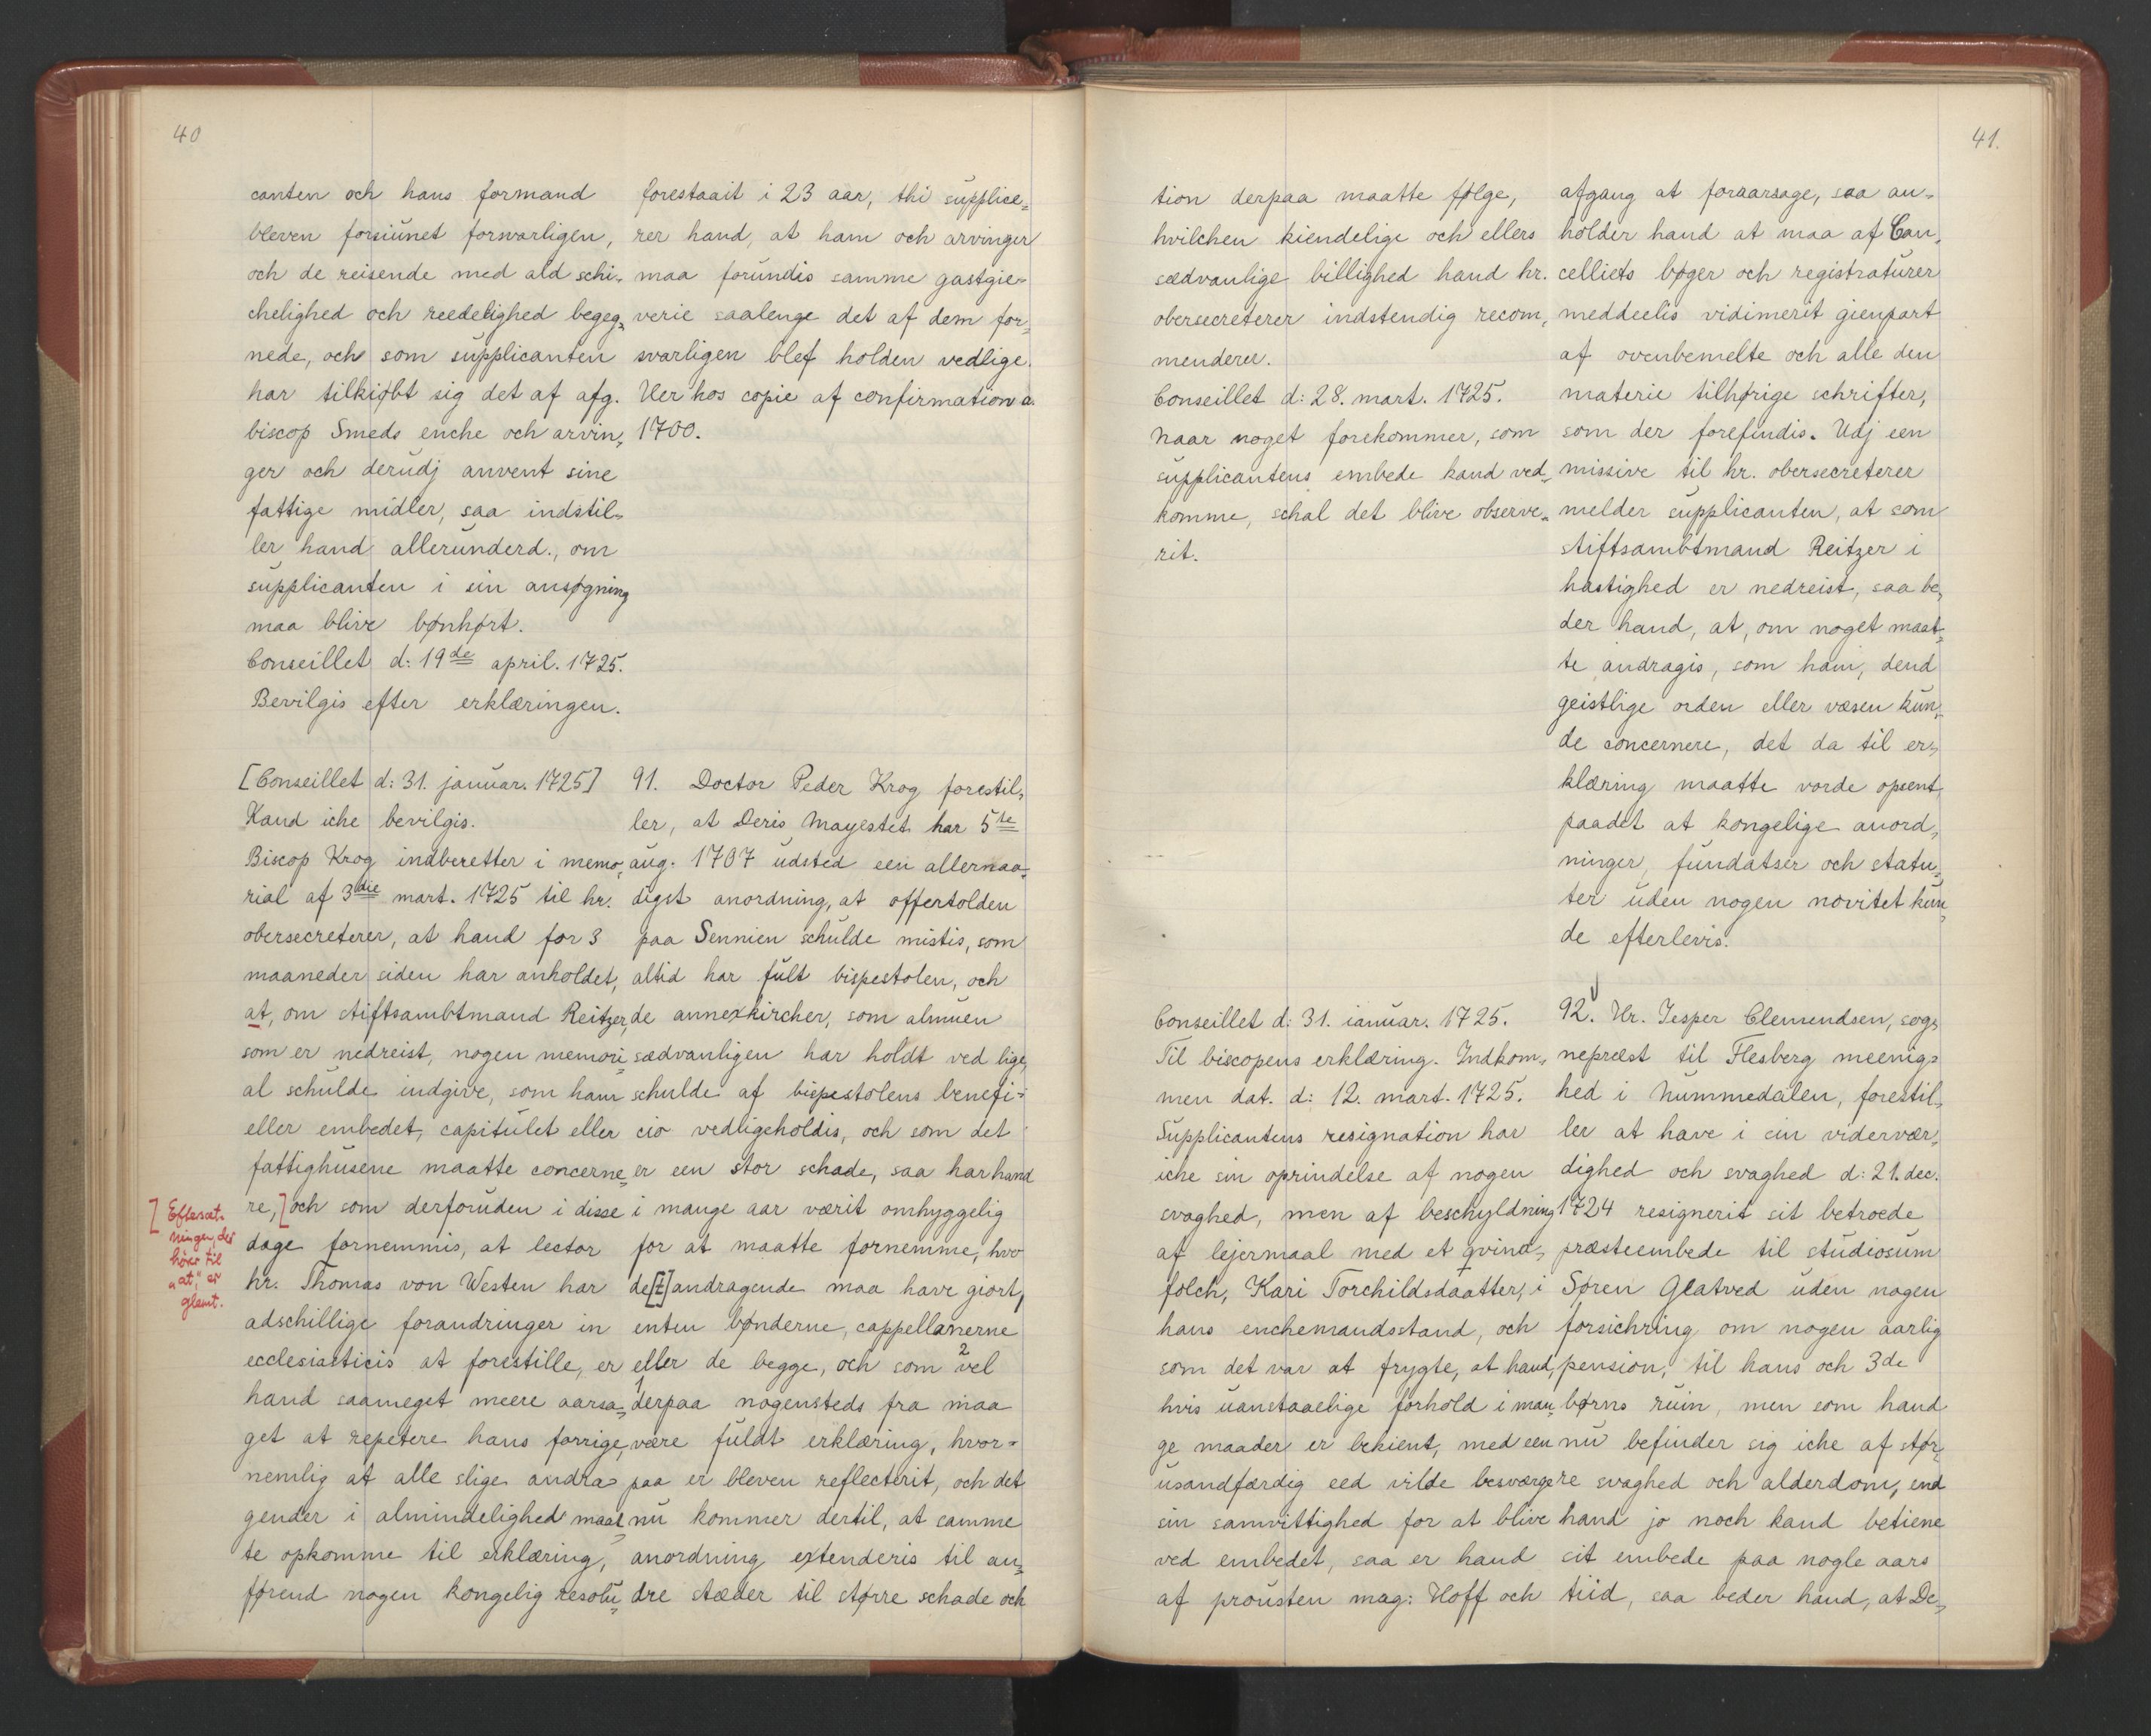 40
canten och hans formand
bleven forsiunet forsvarligen,
och de reisende med ald schi-
chelighed och reedelighed begeg-
nede, och som supplicanten
har tilkiøbt sig det af afg.
biscop Smeds enche och arvin-
ger och derudj anvent sine
fattige midler, saa indstil-
ler hand allerunderd., om
supplicanten i sin ansøgning
maa blive bønhørt.
Conseillet d: 19de april. 1725.
Bevilgis efter erklæringen.
[Conseillet d: 31. januar. 1725]
Kand iche bevilgis.
Biscop Krog indberetter i memo-
rial af 3die mart. 1725 til hr.
obersecreterer, at hand for 3
maaneder siden har anholdet,
at, om stiftsambtmand Reitzer,
som er nedreist, nogen memori-
al schulde indgive, som ham
eller embedet, capitulet eller
fattighusene maatte concerne-
re,] och som derforuden i disse
dage fornemmis, at lector
hr. Thomas von Westen har
adschillige forandringer in
ecclesiasticis at forestille, er
hand saameget meere aarsa-
get at repetere hans forrige,
nemlig at alle slige andra-
gender i almindelighed maat-
te opkomme til erklæring,
førend nogen kongelig resolu-
] Eftersæt-
ningen, der
hører til
"at," er
glemt.
forestaait i 23 aar, thi supplice-
rer hand, at ham och arvinger
maa forundis samme gastgie-
verie saalenge det af dem for-
svarligen blef holden vedlige.
Her hos copie af confirmation a.
1700.
91. Doctor Peder Krog forestil-
ler, at Deris Mayestet har 5te
aug. 1707 udsted een allernaa-
digst anordning, at offertolden
paa Sennien schulde mistis, som
altid har fult bispestolen, och
de annexkircher, som almuen
sædvanligen har holdt ved lige,
schulde af bispestolens benefi-
cio vedligeholdis, och som det
er een stor schade, saa har hand
i mange aar værit omhyggelig
for at maatte fornemme, hvo
de[t] andragende maa have giort,
enten bønderne, cappellanerne
eller de begge, och som 2 vel
1 derpaa nogensteds fra maa
være fuldt erklæring, hvor-
paa er bleven reflecterit, och det
nu kommer dertil, at samme
anordning extenderis til an-
dre stæder til større schade och
41.
tion derpaa maatte følge,
hvilchen kiendelige och ellers
sædvanlige billighed hand hr.
obersecreterer indstendig recom-
menderer.
Conseillet d: 28. mart. 1725.
Naar noget forekommer, som
supplicantens embede kand ved-
komme, schal det blive observe-
rit.
Conseillet d: 31. ianuar. 1725.
Til biscopens erklæring. Indkom-
men dat. d: 12. mart. 1725.
Supplicantens resignation har
iche sin oprindelse af nogen
svaghed, men af beschyldning
af lejermaal med et qvind-
folch, Kari Torchildsdaatter, i
hans enchemandsstand, och
som det var at frygte, at hand,
hvis uanstaaelige forhold i man-
ge maader er bekient, med een
usandfærdig eed vilde besværge
sin samvittighed for at blive
ved embedet, saa er hand
af prousten mag: Hoff och
afgang at foraarsage, saa an-
holder hand at maa af Can-
celliets bøger och registraturer
meddeelis vidimerit gienpart
af ovenbemelte och alle den
materie tilhørige schrifter,
som der forefindis. Udj een
missive til hr. obersecreterer
melder supplicanten, at som
stiftsambtmand Reitzer i
hastighed er nedreist, saa be-
der hand, at, om noget maat-
te andragis, som ham, dend
geistlige orden eller væsen kun-
de concernere, det da til er-
klæring maatte vorde opsent,
paadet at kongelige anord-
ninger, fundatser och statu-
ter uden nogen novitet kun-
de efterlevis.
92. Hr. Jesper Clemendsen, sog-
neprest til Flesberg meenig-
hed i Nummedalen, forestil-
ler at have i sin vidervær-
dighed och svaghed d: 21. dec.
1724 resignerit sit betroede
præsteembede til studiosum
Søren Glatved uden nogen
forsichring om nogen aarlig
pension, til hans och 3de
børns ruin, men som hand
nu befinder sig iche af stør-
re svaghed och alderdom, end
hand jo noch kand betiene
sit embede paa nogle aars
tiid, saa beder hand, at De-